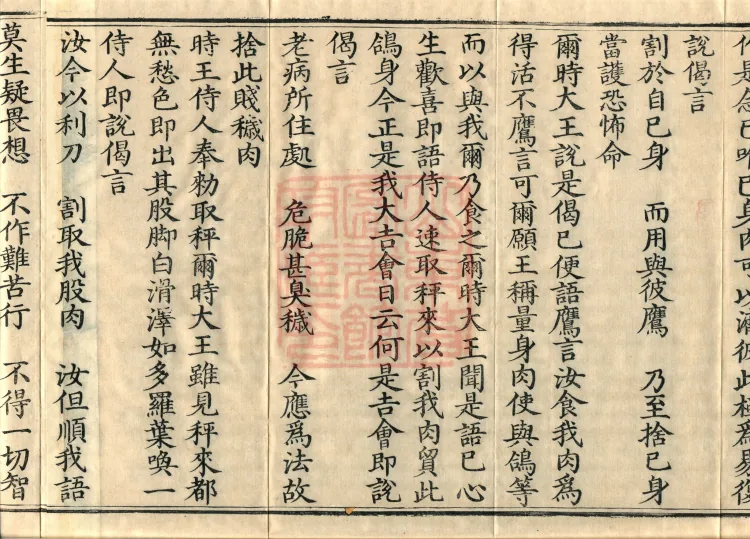 作是念已唯已身肉可以濟彼此極為易復
說偈言
割於自已身　而用與彼鷹　乃至捨已身
當護恐怖命
爾時大王說是偈已便語鷹言汝食我肉為
得活不鷹言可爾願王稱量身肉使與鴿等
而以與我爾乃食之爾時大王聞是語已心
生歡喜即語侍人速取秤來以割我肉貿此
鴿身今正是我大吉會日云何是吉會即說
偈言
老病所住處　危脆甚臭穢　今應爲法故
捨此賤穢肉
時王侍人奉勑取秤爾時大王雖見秤來都
無愁色即出其股脚白滑澤如多羅葉喚一
侍人即說偈言
汝今以利刀　割取我股肉　汝但順我語
莫生疑畏想　不作難苦行　不得一切智